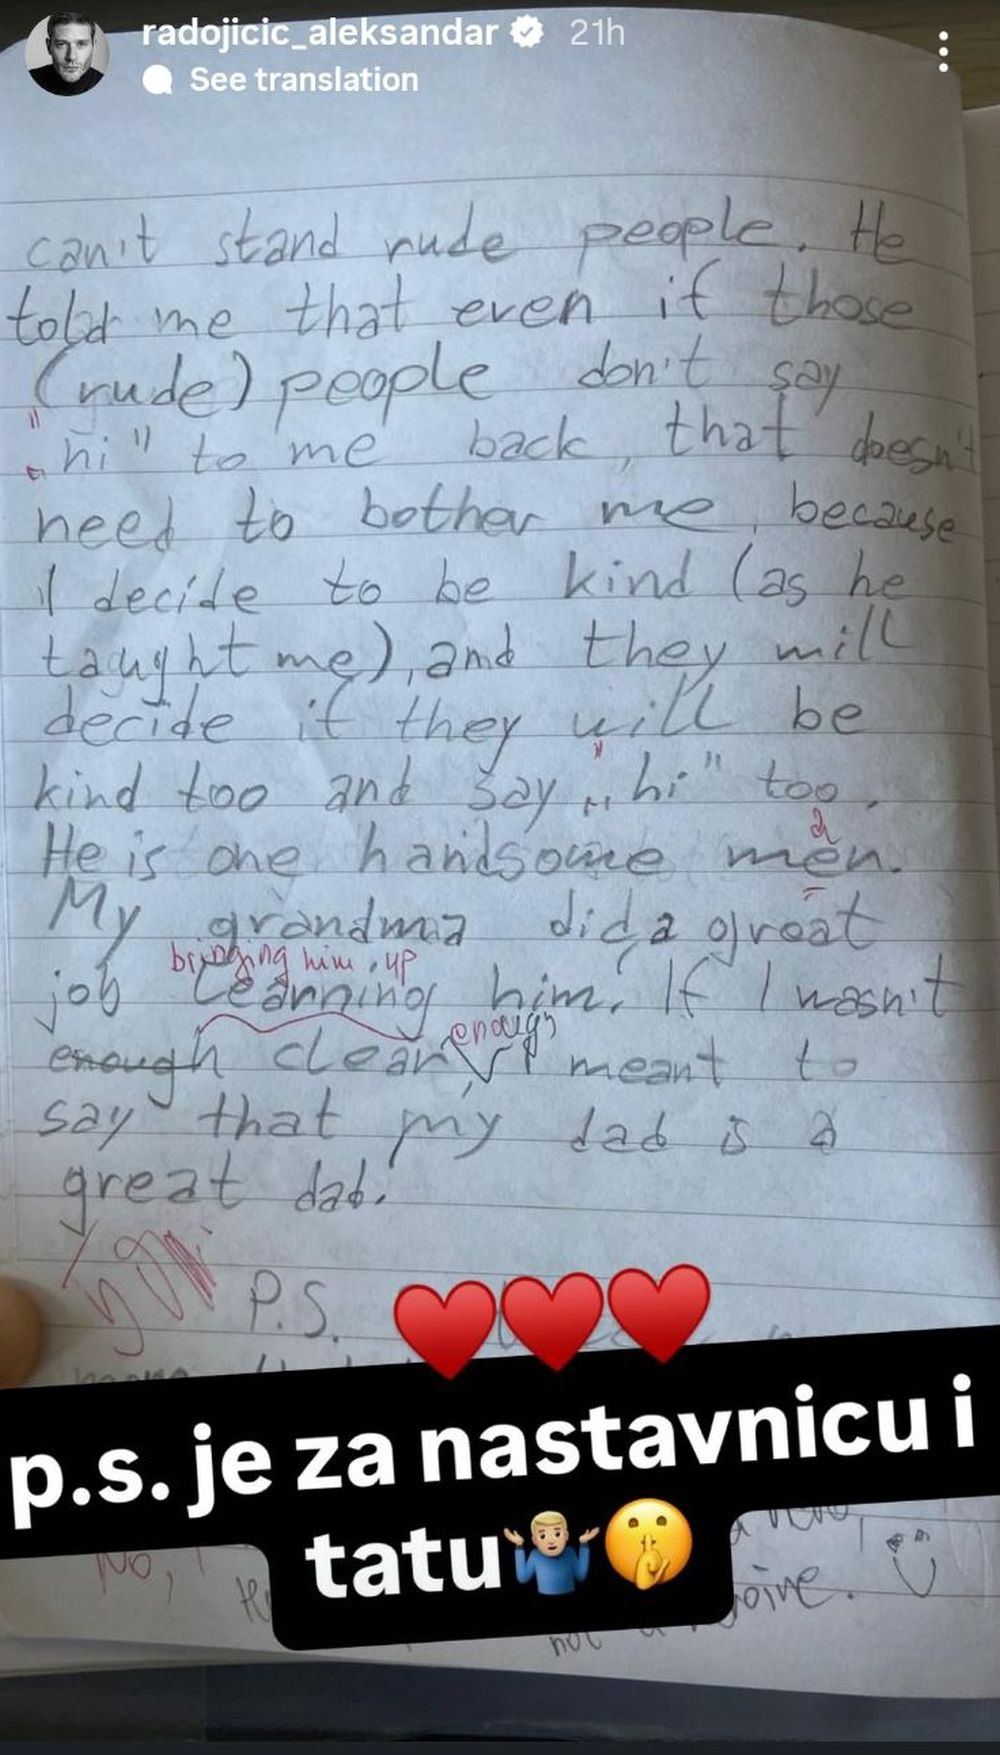 radojicic_aleksandar 21h
See translation
can't stand rude people. He
told me that even if those
(rude) people don't say
"
„hi" to me back, that doesn't
need to bother me, because
I decide to be kind (as he
taught me), and they will
decide if they will be
kind too and say „hi" too.
"
a
He is one handsome men.
My grandma did a great
bringing him up
job learning him. If I wasn't
enough
enough clear, I meant to
say that my dad is a
great dad.
P.S.
p.s. je za nastavnicu i
tatu
No,
not a